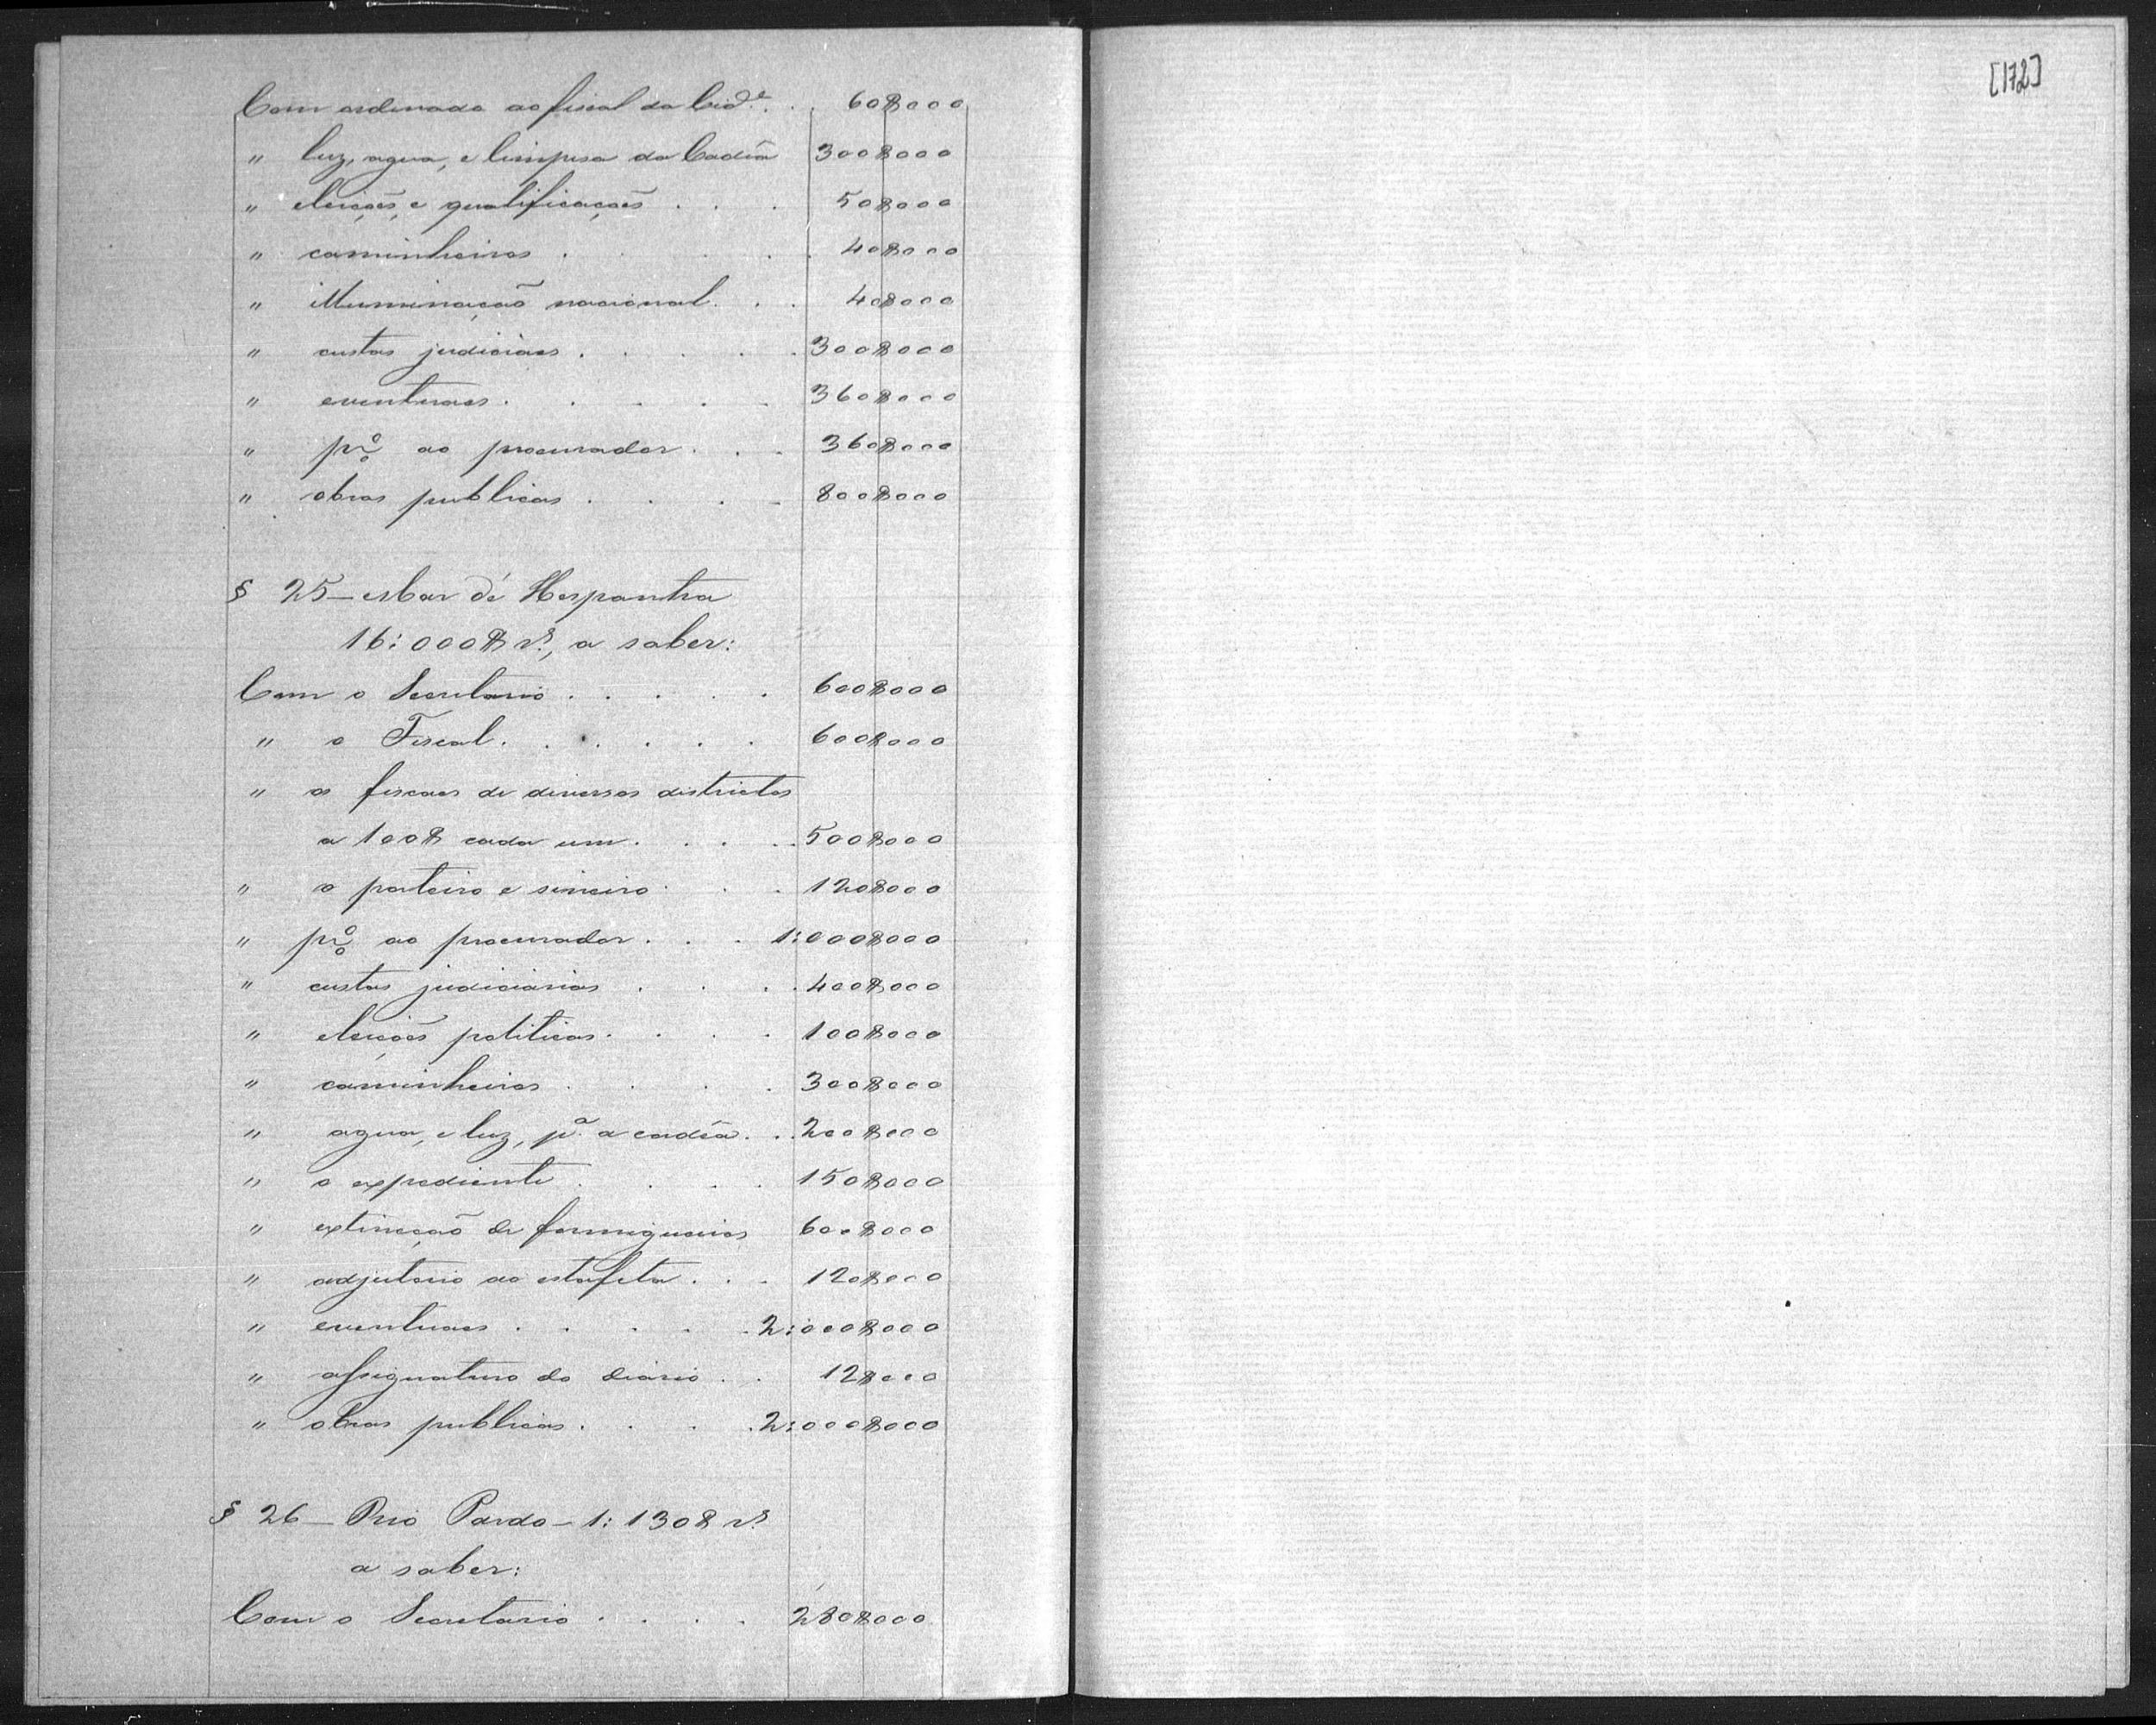 Com ordenado ao fiscal da Cid.e . . 60$000
" luz, agua, e limpesa da Cadêa 300$000
" eleições, e qualificações . . . 50$000
" caminheiros . . . . . 40$000
" illuminação nacional . . . 40$000
" custas judiciaes . . . . . 300$000
" eventuaes . . . . . 360$000
" pr.o ao procurador . . . 360$000
" obras publicas . . . . 800$000
§ 25 — Mar de Hespanha
16:000$ rs, a saber:
Com o Secretario . . . . . 600$000
" o Fiscal . . . . . . 600$000
" os fiscaes de diversos districtos
a 100$ cada um . . . . 500$000
" o porteiro e sineiro . . . 120$000
" pr.o ao procurador . . . 1:000$000
" custas judiciarias . . . . 400$000
" eleições politicas . . . . 100$000
" caminheiros . . . . 300$000
" agua, e luz, p.a a cadêa . . 200$000
" o expediente . . . . 150$000
" extincção de formigueiros 600$000
" adjutorio ao estafeta . . . 120$000
" eventuaes . . . . . 2:000$000
" assignatura do diario . . 12$000
" obras publicas . . . . 2:000$000
§ 26 — Rio Pardo — 1:130$ rs
a saber:
Com o Secretario . . . . 280$000
[172]